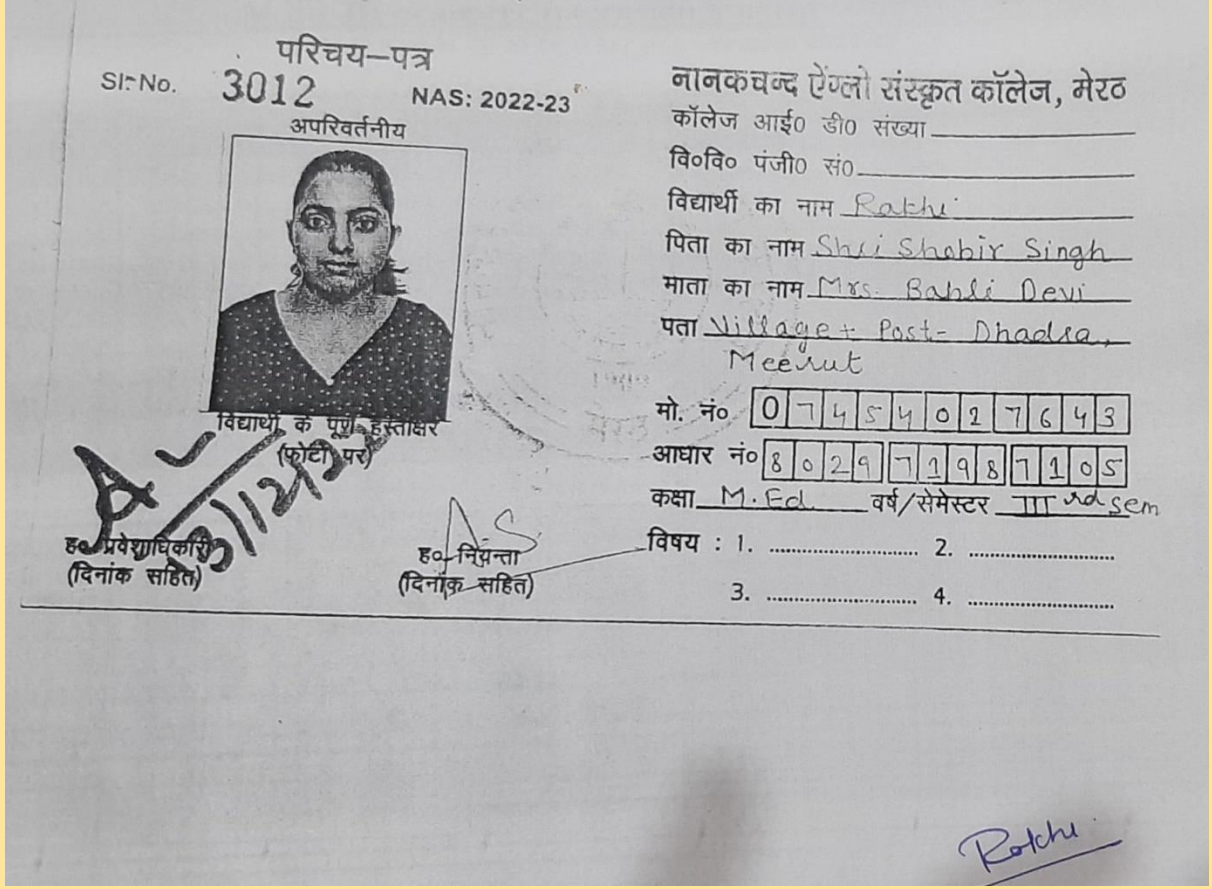 परिचय–पत्र
Sl. No. 3012 NAS: 2022-23
अपरिवर्तनीय
विद्यार्थी के पूर्ण हस्ताक्षर
(फोटो पर)
ह० प्रवेशाधिकारी
(दिनांक सहित)
ह० नियन्ता
(दिनांक सहित)
नानकचन्द ऐंग्लो संस्कृत कॉलेज, मेरठ
कॉलेज आई० डी० संख्या
वि०वि० पंजी० सं०
विद्यार्थी का नाम Rakhi
पिता का नाम Shri Shobir Singh
माता का नाम Mrs. Babli Devi
पता Village + Post - Dhadra,
Meerut
मो. नं० 07454027643
आधार नं० 802971987105
कक्षा M.Ed वर्ष/सेमेस्टर III rd sem
विषय : 1. .......................... 2. ..........................
3. .......................... 4. ..........................
Rakhi